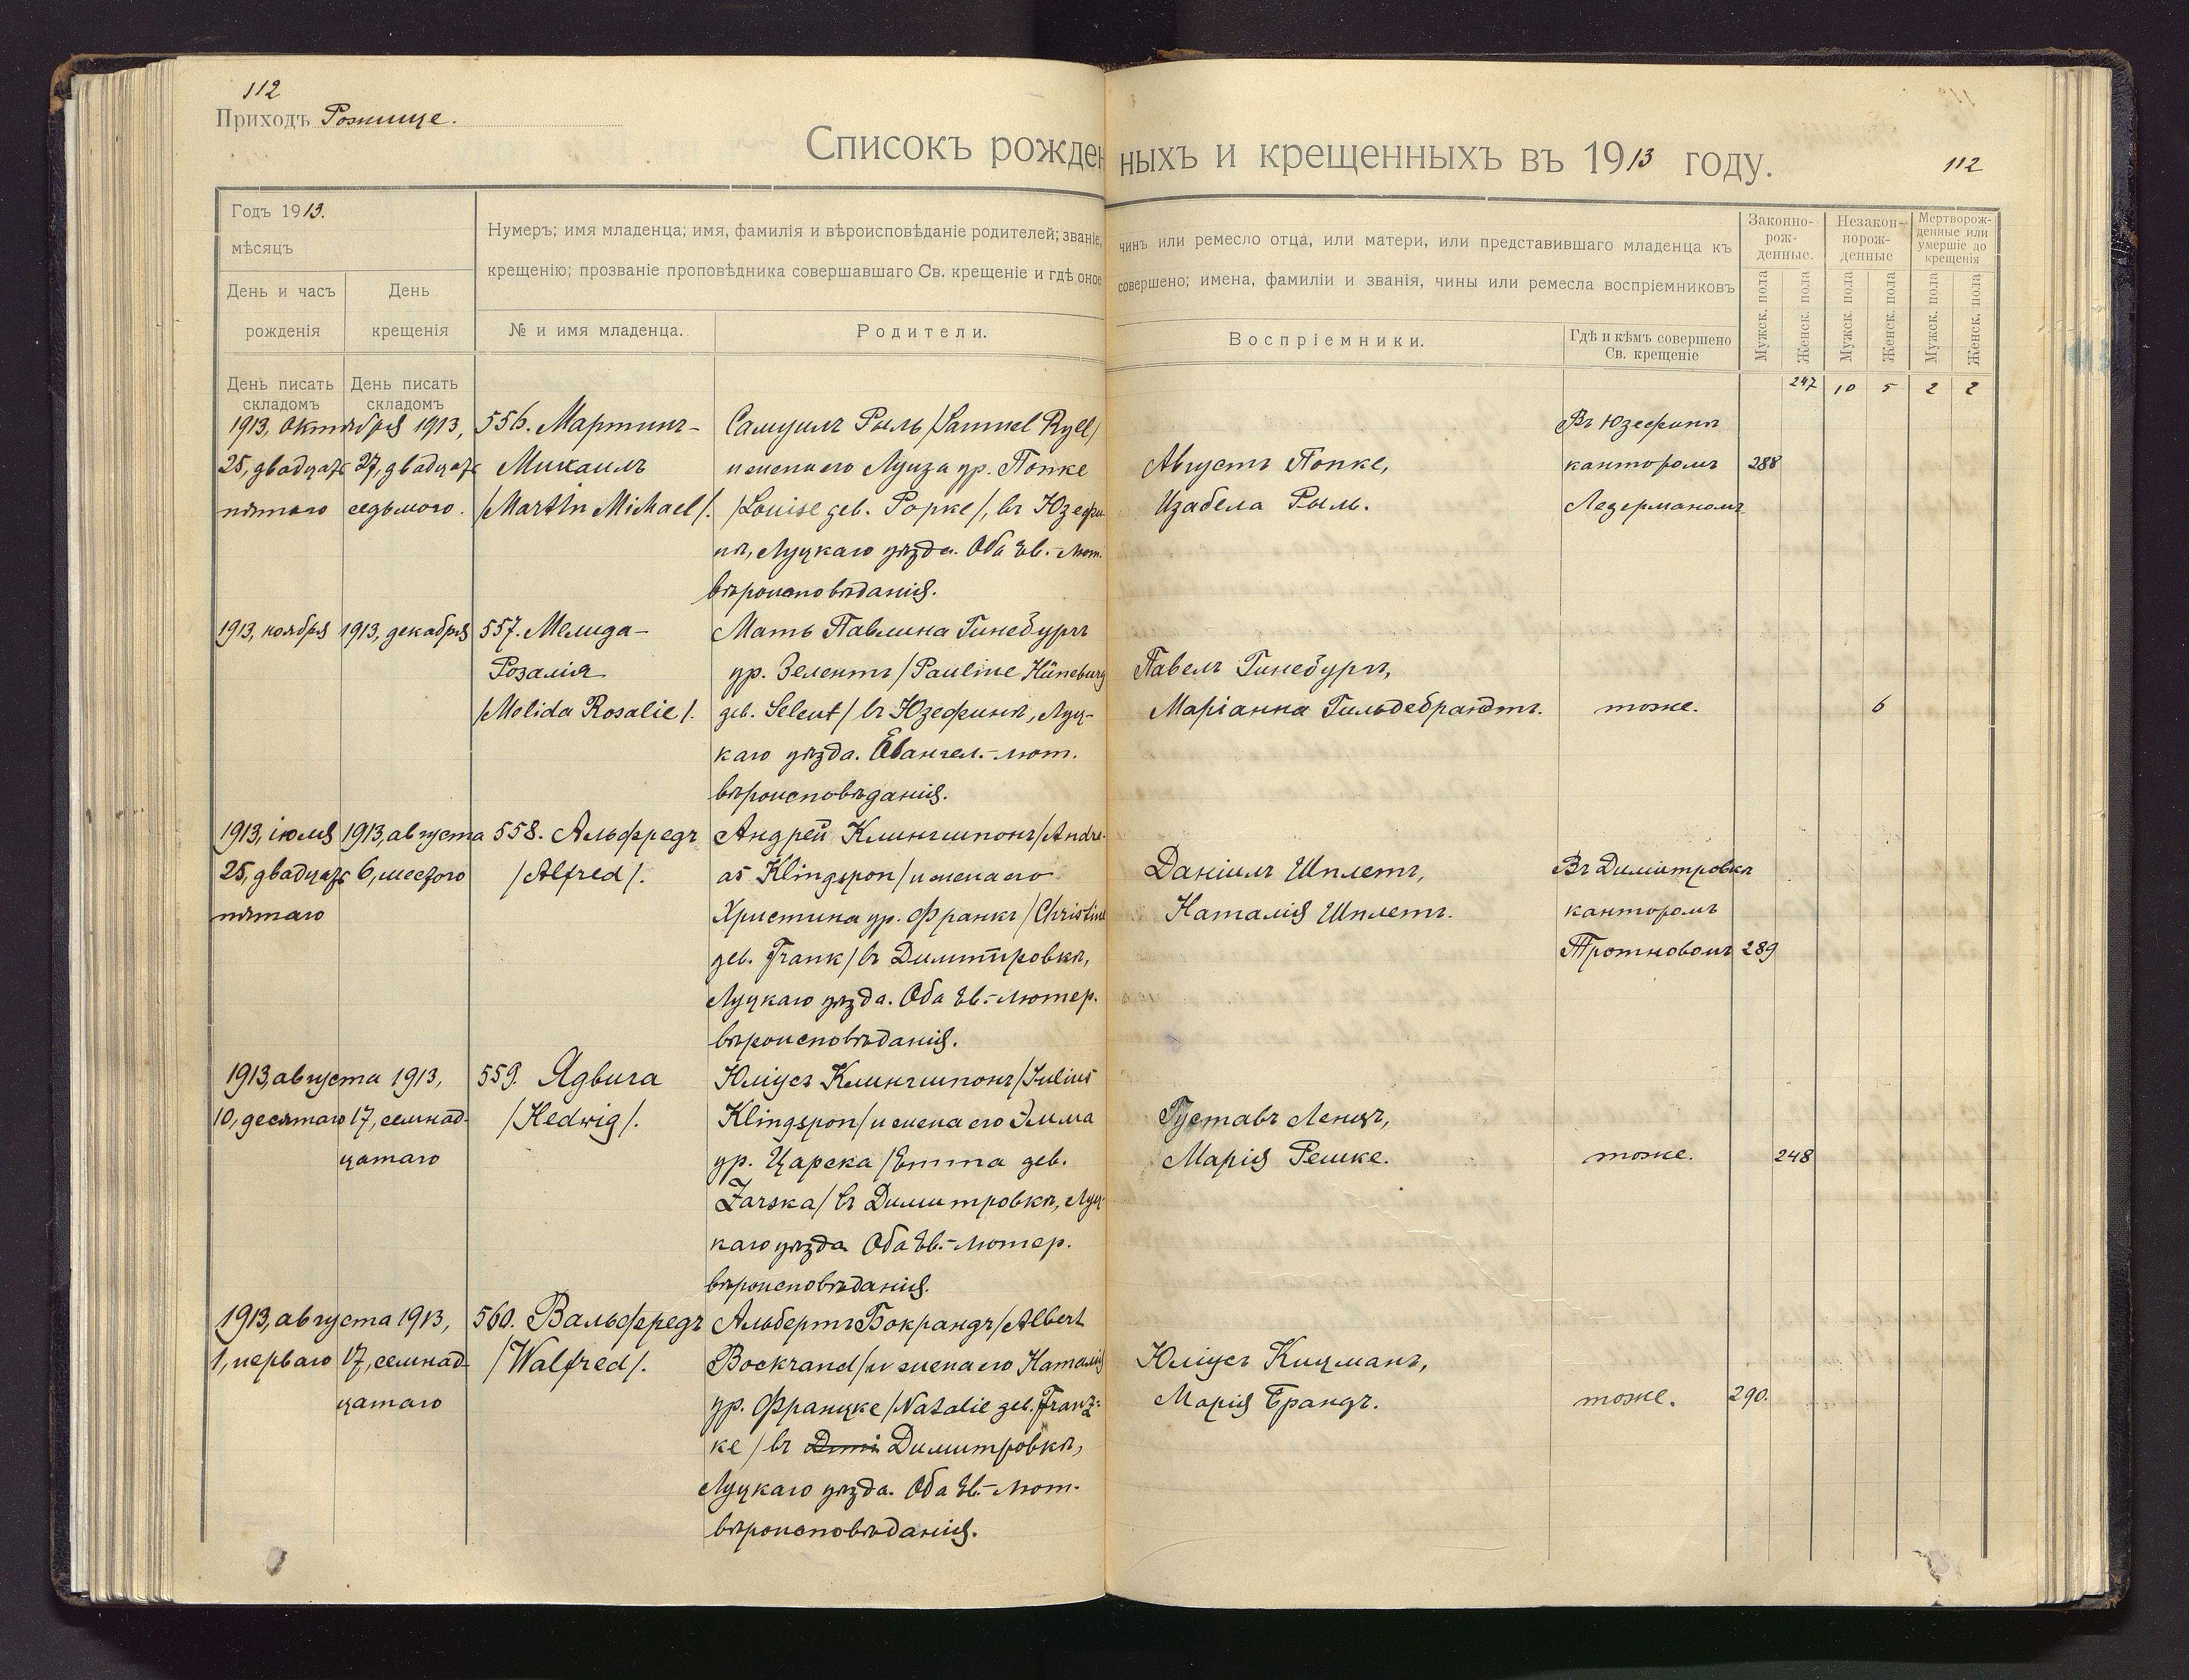 112
Приходъ Рожище.
Списокъ рожденныхъ и крещенныхъ въ 1913 году.
112
Годъ 1913.
мѣсяцъ
День и часъ рожденія
День крещенія
Нумеръ; имя младенца; имя, фамилія и вѣроисповѣданіе родителей; званіе, чинъ или ремесло отца, или матери, или представившаго младенца къ
крещенію; прозваніе проповѣдника совершавшаго Св. крещеніе и гдѣ оное совершено; имена, фамиліи и званія, чины или ремесла воспріемниковъ
№ и имя младенца.
Родители.
Воспріемники.
Гдѣ и кѣмъ совершено
Св. крещеніе
Законно-
рож-
денные.
Незакон-
норож-
денные
Мертворож-
денные или
умершіе до
крещенія
Мужск. пола
Женск. пола
Мужск. пола
Женск. пола
Мужск. пола
Женск. пола
День писать
складомъ
День писать
складомъ
247 10 5 2 2
1913, октября
25, двадцать
пятаго
1913,
27, двадцать
седьмого.
556. Мартинъ-
Михаилъ
/Martin Michael/.
Самуилъ Рыль /Samuel Ryll/
и жена его Луиза ур. Попке
/Louise дев. Popke/, въ Юзефи-
нѣ, Луцкаго уѣзда. Оба Ев.-Лют.
вѣроисповѣданія.
Августъ Попке,
Изабела Рыль.
Въ Юзефинѣ
канторомъ
Ледерманомъ
288
1913, ноября
1913, декабря
557. Мелида-
Розалія
/Melida Rosalie/.
Мать Павлина Гинебургъ
ур. Зелентъ /Pauline Hüneburg
дев. Selent/ въ Юзефинѣ, Луц-
каго уѣзда. Евангел.-лют.
вѣроисповѣданія.
Павелъ Гинебургъ,
Маріанна Гильдебрандтъ.
тоже.
6
1913, іюля
25, двадцать
пятаго
1913, августа
6, шестого
558. Альфредъ
/Alfred/.
Андрей Клингшпонъ /Andre-
as Klingspon/ и жена его
Христина ур. Франкъ /Christine
дев. Frank/ въ Димитровкѣ,
Луцкаго уѣзда. Оба Ев.-лютер.
вѣроисповѣданія.
Даніилъ Шплетъ,
Наталія Шплетъ.
Въ Димитровкѣ
канторомъ
289
1913, августа
10, десятаго
1913,
17, семнад-
цатаго
559. Ядвига
/Hedwig/.
Юліусъ Клингшпонъ /Julius
Klingspon/ и жена его Эмма
ур. Царска /Emma дев.
Zarska/ въ Димитровкѣ, Луц-
каго уѣзда. Оба Ев.-лютер.
вѣроисповѣданія.
Густавъ Ленцъ,
Марія Решке.
тоже.
248
1913, августа
1, перваго
1913,
17, семнад-
цатаго
560. Вальфредъ
/Walfred/.
Альбертъ Бокрандъ /Albert
Bockrand/ и жена его Наталія
ур. Францке /Natalie дев. Franz-
ке/ въ Димитровкѣ,
Луцкаго уѣзда. Оба Ев.-лют.
вѣроисповѣданія.
Юліусъ Кицманъ,
Марія Брандъ.
тоже.
290.